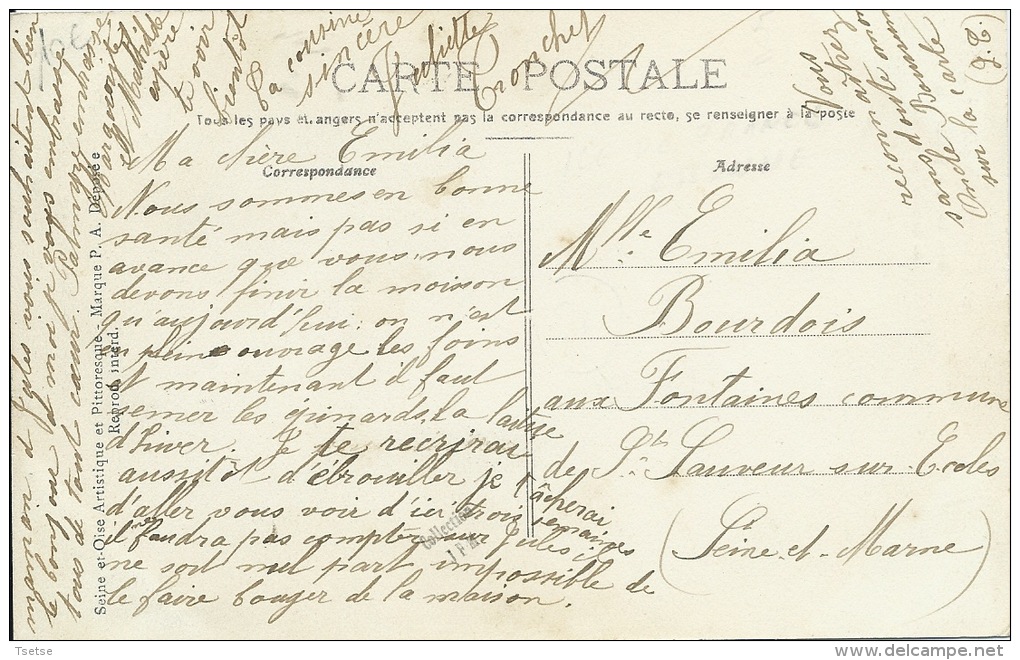 CARTE POSTALE
Tous les pays étrangers n'acceptent pas la correspondance au recto, se renseigner à la poste
Correspondance
Adresse
Ma chère Emilia
Nous sommes en bonne
santé mais pas si en
avance que vous, nous
devons finir la moisson
qu'aujourd'hui: on n'est
en plein ouvrage les foins
et maintenant il faut
semer les épinards, la laitue
d'hiver. Je te recrirai
aussitôt d'ébrouiller je tâcherai
d'aller vous voir d'ici trois semaines
il faudra pas compter sur Jules il
ne soit nul part impossible de
le faire bouger de la maison.
Jules aussi
je t'embrasse
tous de tout cœur. Palmyre embrasse
Marguerite
et Mathilde
espère
te voir
bientôt
Ta cousine
sincère
Juliette
Cronchet
Mlle Emilia
Bourdois
aux Fontaines commune
de St Sauveur sur Ecoles
(Seine-et-Marne)
(T.S.)
sur la carte
Vous
reconnaître
Seine-et-Oise Artistique et Pittoresque - Marque P. A. Déposée
Reprod. interd.
Collection
Tsetse
delcampe.net